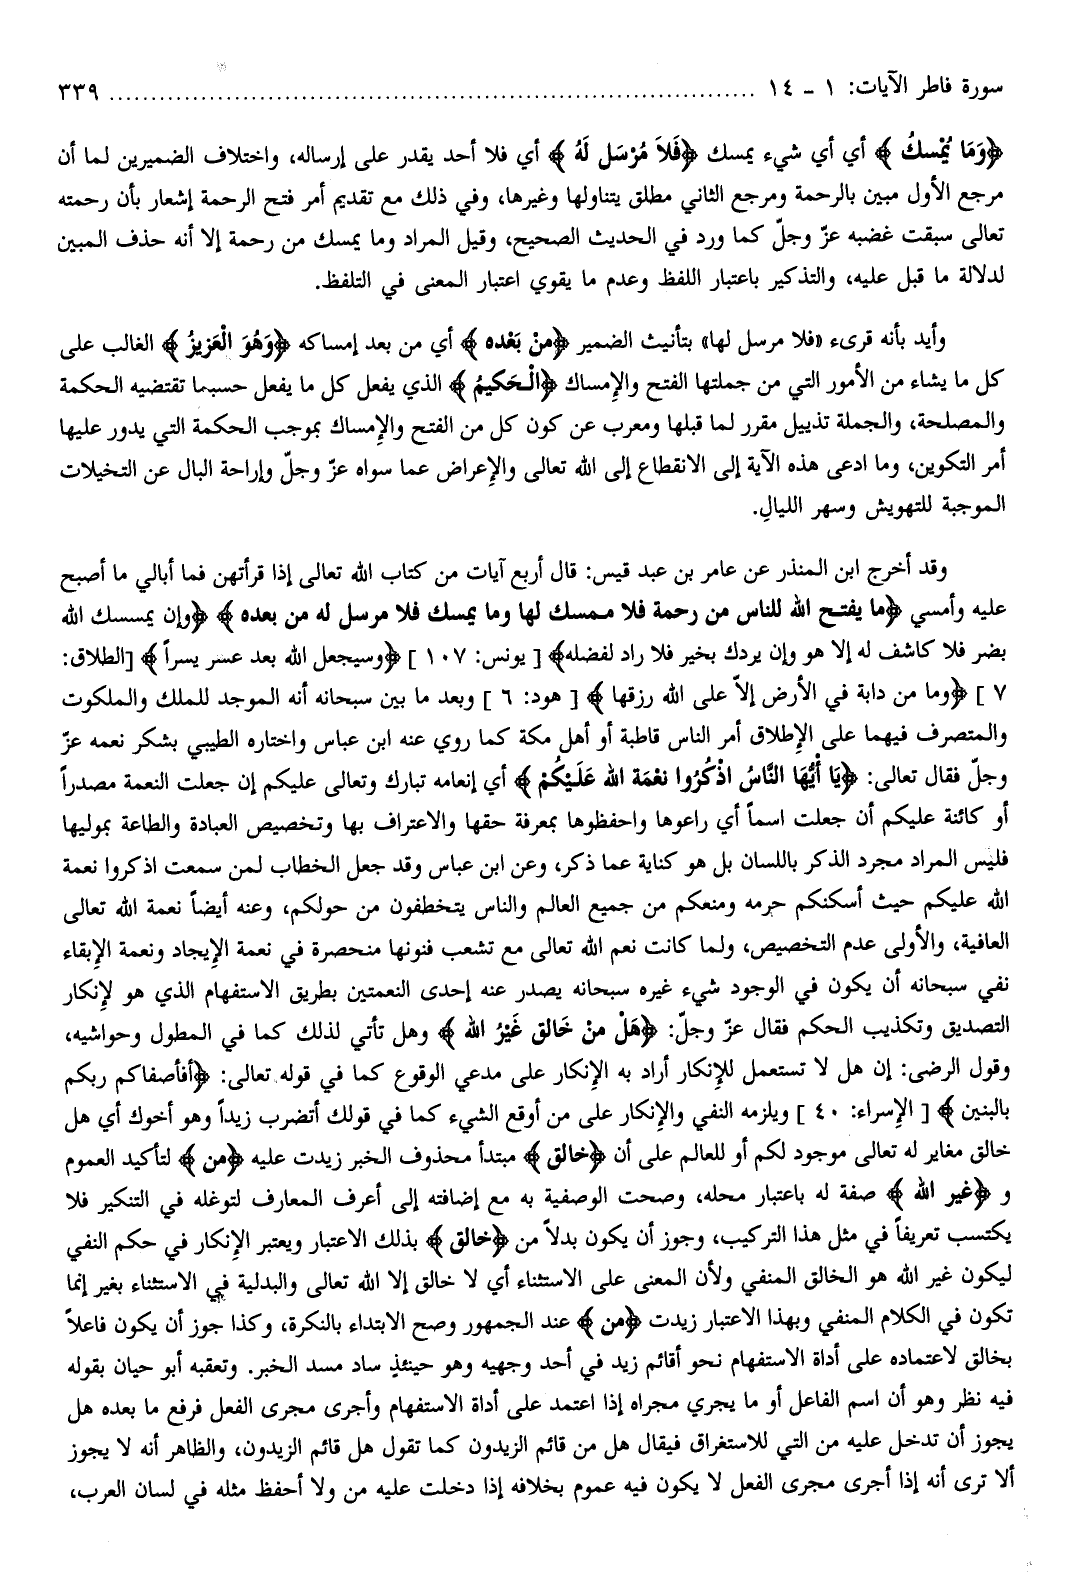 سورة فاطر الآيات: ١ ـ ١٤ ........................................................................ ٣٣٩
﴿وَمَا يُمْسكُ ﴾ أي أي شيء يمسك ﴿فَلاَ مُرْسَل لَهُ ﴾ أي فلا أحد يقدر على إرساله، واختلاف الضميرين لما أن
مرجع الأول مبين بالرحمة ومرجع الثاني مطلق يتناولها وغيرها، وفي ذلك مع تقديم أمر فتح الرحمة إشعار بأن رحمته
تعالى سبقت غضبه عزّ وجلّ كما ورد في الحديث الصحيح، وقيل المراد وما يمسك من رحمة إلا أنه حذف المبين
لدلالة ما قبل عليه، والتذكير باعتبار اللفظ وعدم ما يقوي اعتبار المعنى في التلفظ.
وأيد بأنه قرىء «فلا مرسل لها» بتأنيث الضمير ﴿منْ بَعْده ﴾ أي من بعد إمساكه ﴿وَهُوَ الْعَزيزُ ﴾ الغالب على
كل ما يشاء من الأمور التي من جملتها الفتح والإِمساك ﴿الْحَكيمُ ﴾ الذي يفعل كل ما يفعل حسبما تقتضيه الحكمة
والمصلحة، والجملة تذييل مقرر لما قبلها ومعرب عن كون كل من الفتح والإِمساك بموجب الحكمة التي يدور عليها
أمر التكوين، وما ادعى هذه الآية إلى الانقطاع إلى الله تعالى والإِعراض عما سواه عزّ وجلّ وإراحة البال عن التخيلات
الموجبة للتهويش وسهر الليالِ.
وقد أخرج ابن المنذر عن عامر بن عبد قيس: قال أربع آيات من كتاب الله تعالى إذا قرأتهن فما أبالي ما أصبح
عليه وأمسي ﴿ما يفتح الله للناس من رحمة فلا ممسك لها وما يمسك فلا مرسل له من بعده ﴾ ﴿وإن يمسسك الله
بضر فلا كاشف له إلا هو وإن يردك بخير فلا راد لفضله﴾ [ يونس: ١٠٧ ] ﴿وسيجعل الله بعد عسر يسراً ﴾ [الطلاق:
٧ ] ﴿وما من دابة في الأرض إلاّ على الله رزقها ﴾ [ هود: ٦ ] وبعد ما بين سبحانه أنه الموجد للملك والملكوت
والمتصرف فيهما على الإِطلاق أمر الناس قاطبة أو أهل مكة كما روي عنه ابن عباس واختاره الطيبي بشكر نعمه عزّ
وجلّ فقال تعالى: ﴿يَا أَيُّهَا النَّاسُ اذْكُرُوا نعْمَةَ الله عَلَيْكُمْ ﴾ أي إنعامه تبارك وتعالى عليكم إن جعلت النعمة مصدراً
أو كائنة عليكم أن جعلت اسماً أي راعوها واحفظوها بمعرفة حقها والاعتراف بها وتخصيص العبادة والطاعة بموليها
فليس المراد مجرد الذكر باللسان بل هو كناية عما ذكر، وعن ابن عباس وقد جعل الخطاب لمن سمعت اذكروا نعمة
الله عليكم حيث أسكنكم حرمه ومنعكم من جميع العالم والناس يتخطفون من حولكم، وعنه أيضاً نعمة الله تعالى
العافية، والأولى عدم التخصيص، ولما كانت نعم الله تعالى مع تشعب فنونها منحصرة في نعمة الإِيجاد ونعمة الإِبقاء
نفي سبحانه أن يكون في الوجود شيء غيره سبحانه يصدر عنه إحدى النعمتين بطريق الاستفهام الذي هو لإِنكار
التصديق وتكذيب الحكم فقال عزّ وجلّ: ﴿هَلْ منْ خَالق غَيْرُ الله ﴾ وهل تأتي لذلك كما في المطول وحواشيه،
وقول الرضى: إن هل لا تستعمل للإِنكار أراد به الإِنكار على مدعي الوقوع كما في قوله تعالى: ﴿أفأصفاكم ربكم
بالبنين ﴾ [ الإِسراء: ٤٠ ] ويلزمه النفي والإِنكار على من أوقع الشيء كما في قولك أتضرب زيداً وهو أخوك أي هل
خالق مغاير له تعالى موجود لكم أو للعالم على أن ﴿خالق ﴾ مبتدأ محذوف الخبر زيدت عليه ﴿من ﴾ لتأكيد العموم
و ﴿غير الله ﴾ صفة له باعتبار محله، وصحت الوصفية به مع إضافته إلى أعرف المعارف لتوغله في التنكير فلا
يكتسب تعريفاً في مثل هذا التركيب، وجوز أن يكون بدلاً من ﴿خالق ﴾ بذلك الاعتبار ويعتبر الإِنكار في حكم النفي
ليكون غير الله هو الخالق المنفي ولأن المعنى على الاستثناء أي لا خالق إلا الله تعالى والبدلية في الاستثناء بغير إنما
تكون في الكلام المنفي وبهذا الاعتبار زيدت ﴿من ﴾ عند الجمهور وصح الابتداء بالنكرة، وكذا جوز أن يكون فاعلاً
بخالق لاعتماده على أداة الاستفهام نحو أقائم زيد في أحد وجهيه وهو حينئذٍ ساد مسد الخبر. وتعقبه أبو حيان بقوله
فيه نظر وهو أن اسم الفاعل أو ما يجري مجراه إذا اعتمد على أداة الاستفهام وأجرى مجرى الفعل فرفع ما بعده هل
يجوز أن تدخل عليه من التي للاستغراق فيقال هل من قائم الزيدون كما تقول هل قائم الزيدون، والظاهر أنه لا يجوز
ألا ترى أنه إذا أجرى مجرى الفعل لا يكون فيه عموم بخلافه إذا دخلت عليه من ولا أحفظ مثله في لسان العرب،